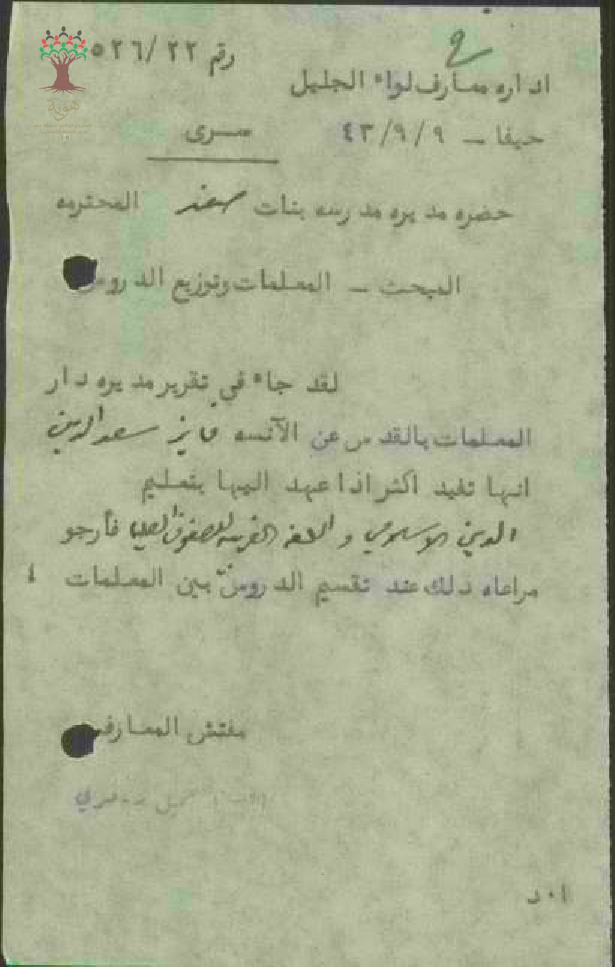 هوية
رقم ٥٢٦/٢٢
اداره معارف لواء الجليل
حيفا - ٤٣/٩/٩ سرى
حضره مديره مدرسه بنات صفد المحترمه
المبحث - المعلمات وتوزيع الدروس
لقد جاء في تقرير مديره دار
المعلمات بالقدس عن الآنسه فايز سعد الدين
انها تفيد اكثر اذا عهد اليها بتعليم
الدين الاسلامي و اللغه العربيه للصفوف العليا فأرجو
مراعاه ذلك عند تقسيم الدروس بين المعلمات ،
مفتش المعارف
ا٠د